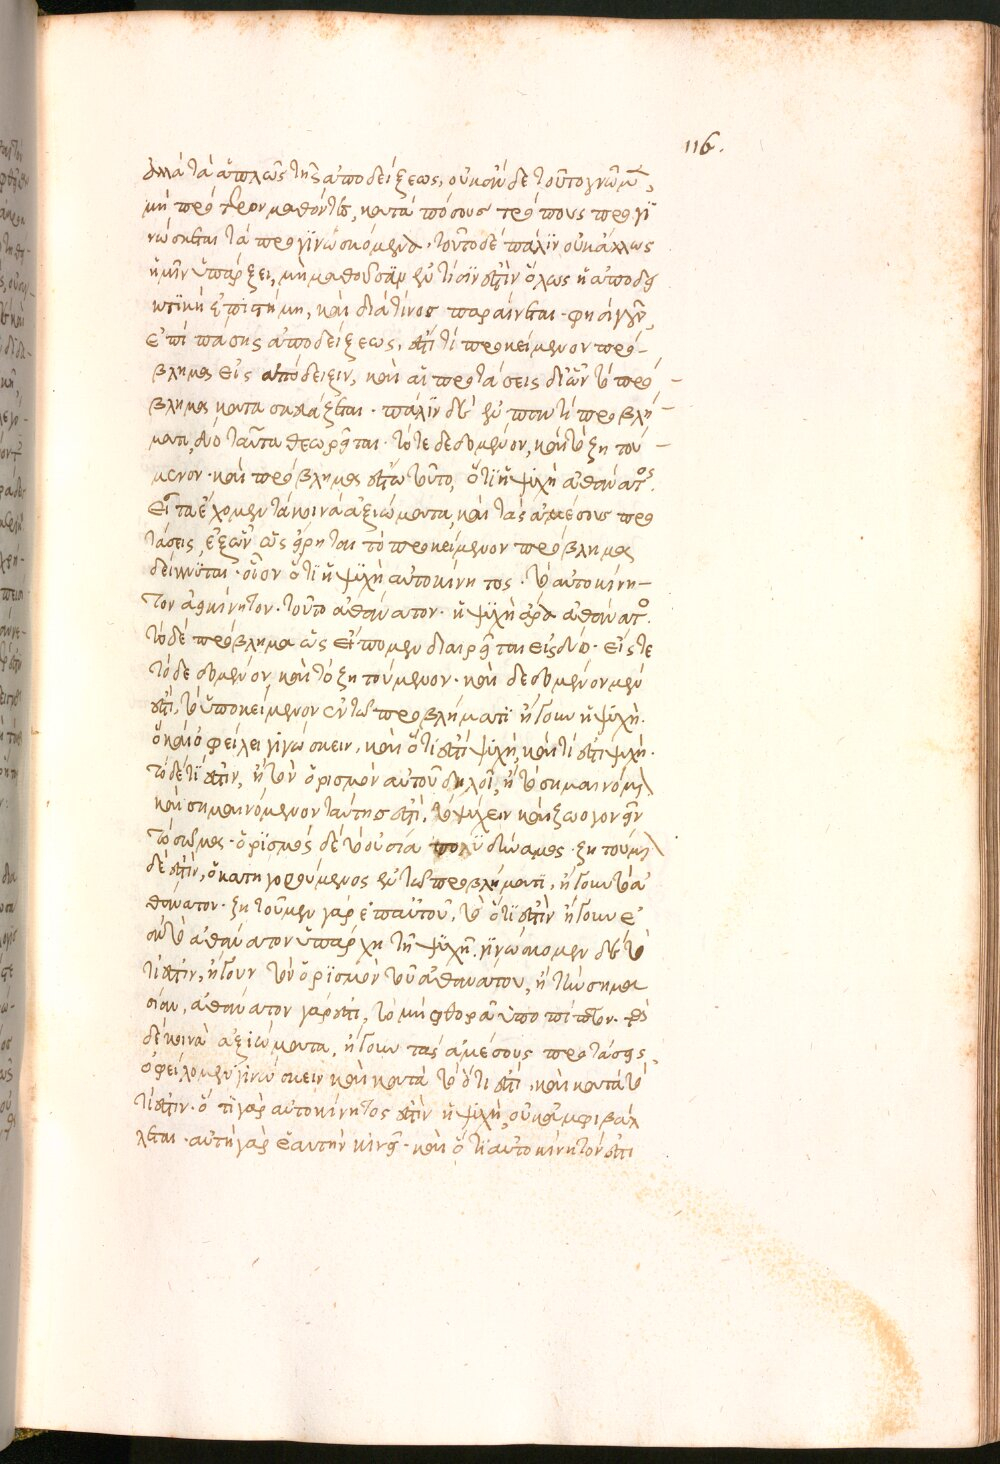 116.
ἀλλὰ τὰ ἁπλῶς τῆς ἀποδείξεως, οὐκ οὖν δὲ τοῦτο γνῶμεν,
μὴ πρότερον μαθόντες, κατὰ πόσους τρόπους προγϊ
νώσκεται τὰ προγϊνωσκόμενα. τοῦτο δὲ πάλϊν οὐκ ἄλλως
ἡμῖν ὑπάρξει, μὴ μαθοῦσαν τί ἐστὶν ὅλως ἡ ἀποδει
κτϊκὴ ἐπιστήμη, καὶ διὰ τίνος παραίνεται. φησὶ γοῦν,
ἐπὶ πάσης ἀποδείξεως, ἐστὶ τὶ προκείμενον πρό-
βλημα εἰς ἀπόδειξιν, καὶ αἱ προτάσεις δι' ὧν τὸ πρό-
βλημα κατασκευάζεται. πάλϊν δὲ ἐν παντὶ προβλή-
ματι, δύο ταῦτα θεωρεῖται. τό τε δεδομένον, καὶ τὸ ζητού-
μενον. καὶ πρόβλημα ἔστω τοῦτο, ὅτϊ ἡ ψϋχὴ ἀθάνατος.
εἶτα ἔχομεν τὰ κοινὰ ἀξιώματα, καὶ τὰς ἀμέσους προ
τάσεις, ἐξ ὧν ὡς εἴρηται τὸ προκείμενον πρόβλημα
δείκνϋται. οἷον ὅτϊ ἡ ψϋχὴ αὐτοκίνητος. τὸ αὐτοκίνη-
τον ἀεικίνητον. τοῦτο ἀθάνατον. ἡ ψϋχὴ ἄρα ἀθάνατος.
τὸ δὲ πρόβλημα ὡς εἴπομεν διαιρεῖται εἰς δύο. εἴς τε
τὸ δεδομένον καὶ τὸ ζητούμενον. καὶ δεδομένον μέν
ἐστι, τὸ ὑποκείμενον ἐν τῷ προβλήματϊ ἤγουν ἡ ψϋχή.
ὃ καὶ ὀφείλει γϊγνώσκειν, καὶ ὅτί ἐστι ψϋχή, καὶ τί ἐστι ψυχή.
τὸ δὲ τί ἐστιν, ἢ τὸν ὁρισμὸν αὐτοῦ δηλοῖ, ἢ τὸ σημαινόμενον
καὶ σημαινόμενον ταύτης ἐστὶ, τὸ ψύχειν καὶ ζωογονεῖν
τὸ σῶμα. ὁρϊσμὸς δὲ τὸ οὐσία πολϋδύναμος. ζητούμενον
δέ ἐστιν, ὁ κατηγορούμενος ἐν τῷ προβλήματϊ, ἤγουν τὸ ἀ
θάνατον. ζητοῦμεν γὰρ ἐπ' αὐτοῦ, τὸ ὅτϊ ἐστὶν ἤγουν ἐ
ὰν τὸ ἀθάνατον ὑπάρχη τῇ ψϋχῇ. γϊνώσκομεν δὲ τὸ
τί ἐστιν, ἤγουν τὸν ὁρϊσμὸν τοῦ ἀθανάτου, ἢ τὴν σημα
σίαν, ἀθάνατον γάρ ἐστι, τὸ μὴ φθορᾷ ὑποπίπτον. τὰ
δὲ κοινὰ ἀξιώματα, ἤγουν τὰς ἀμέσους προτάσεις,
ὀφείλομεν γϊνώσκειν καὶ κατὰ τὸ ὅτι ἐστί, καὶ κατὰ τὸ
τί ἐστιν. ὅτϊ γὰρ αὐτοκίνητος ἐστὶν ἡ ψϋχή, οὐκ ἀμφιβάλ
λεται. αὐτὴ γὰρ ἑαυτὴν κινεῖ. καὶ ὅτϊ αὐτοκίνητόν ἐστι